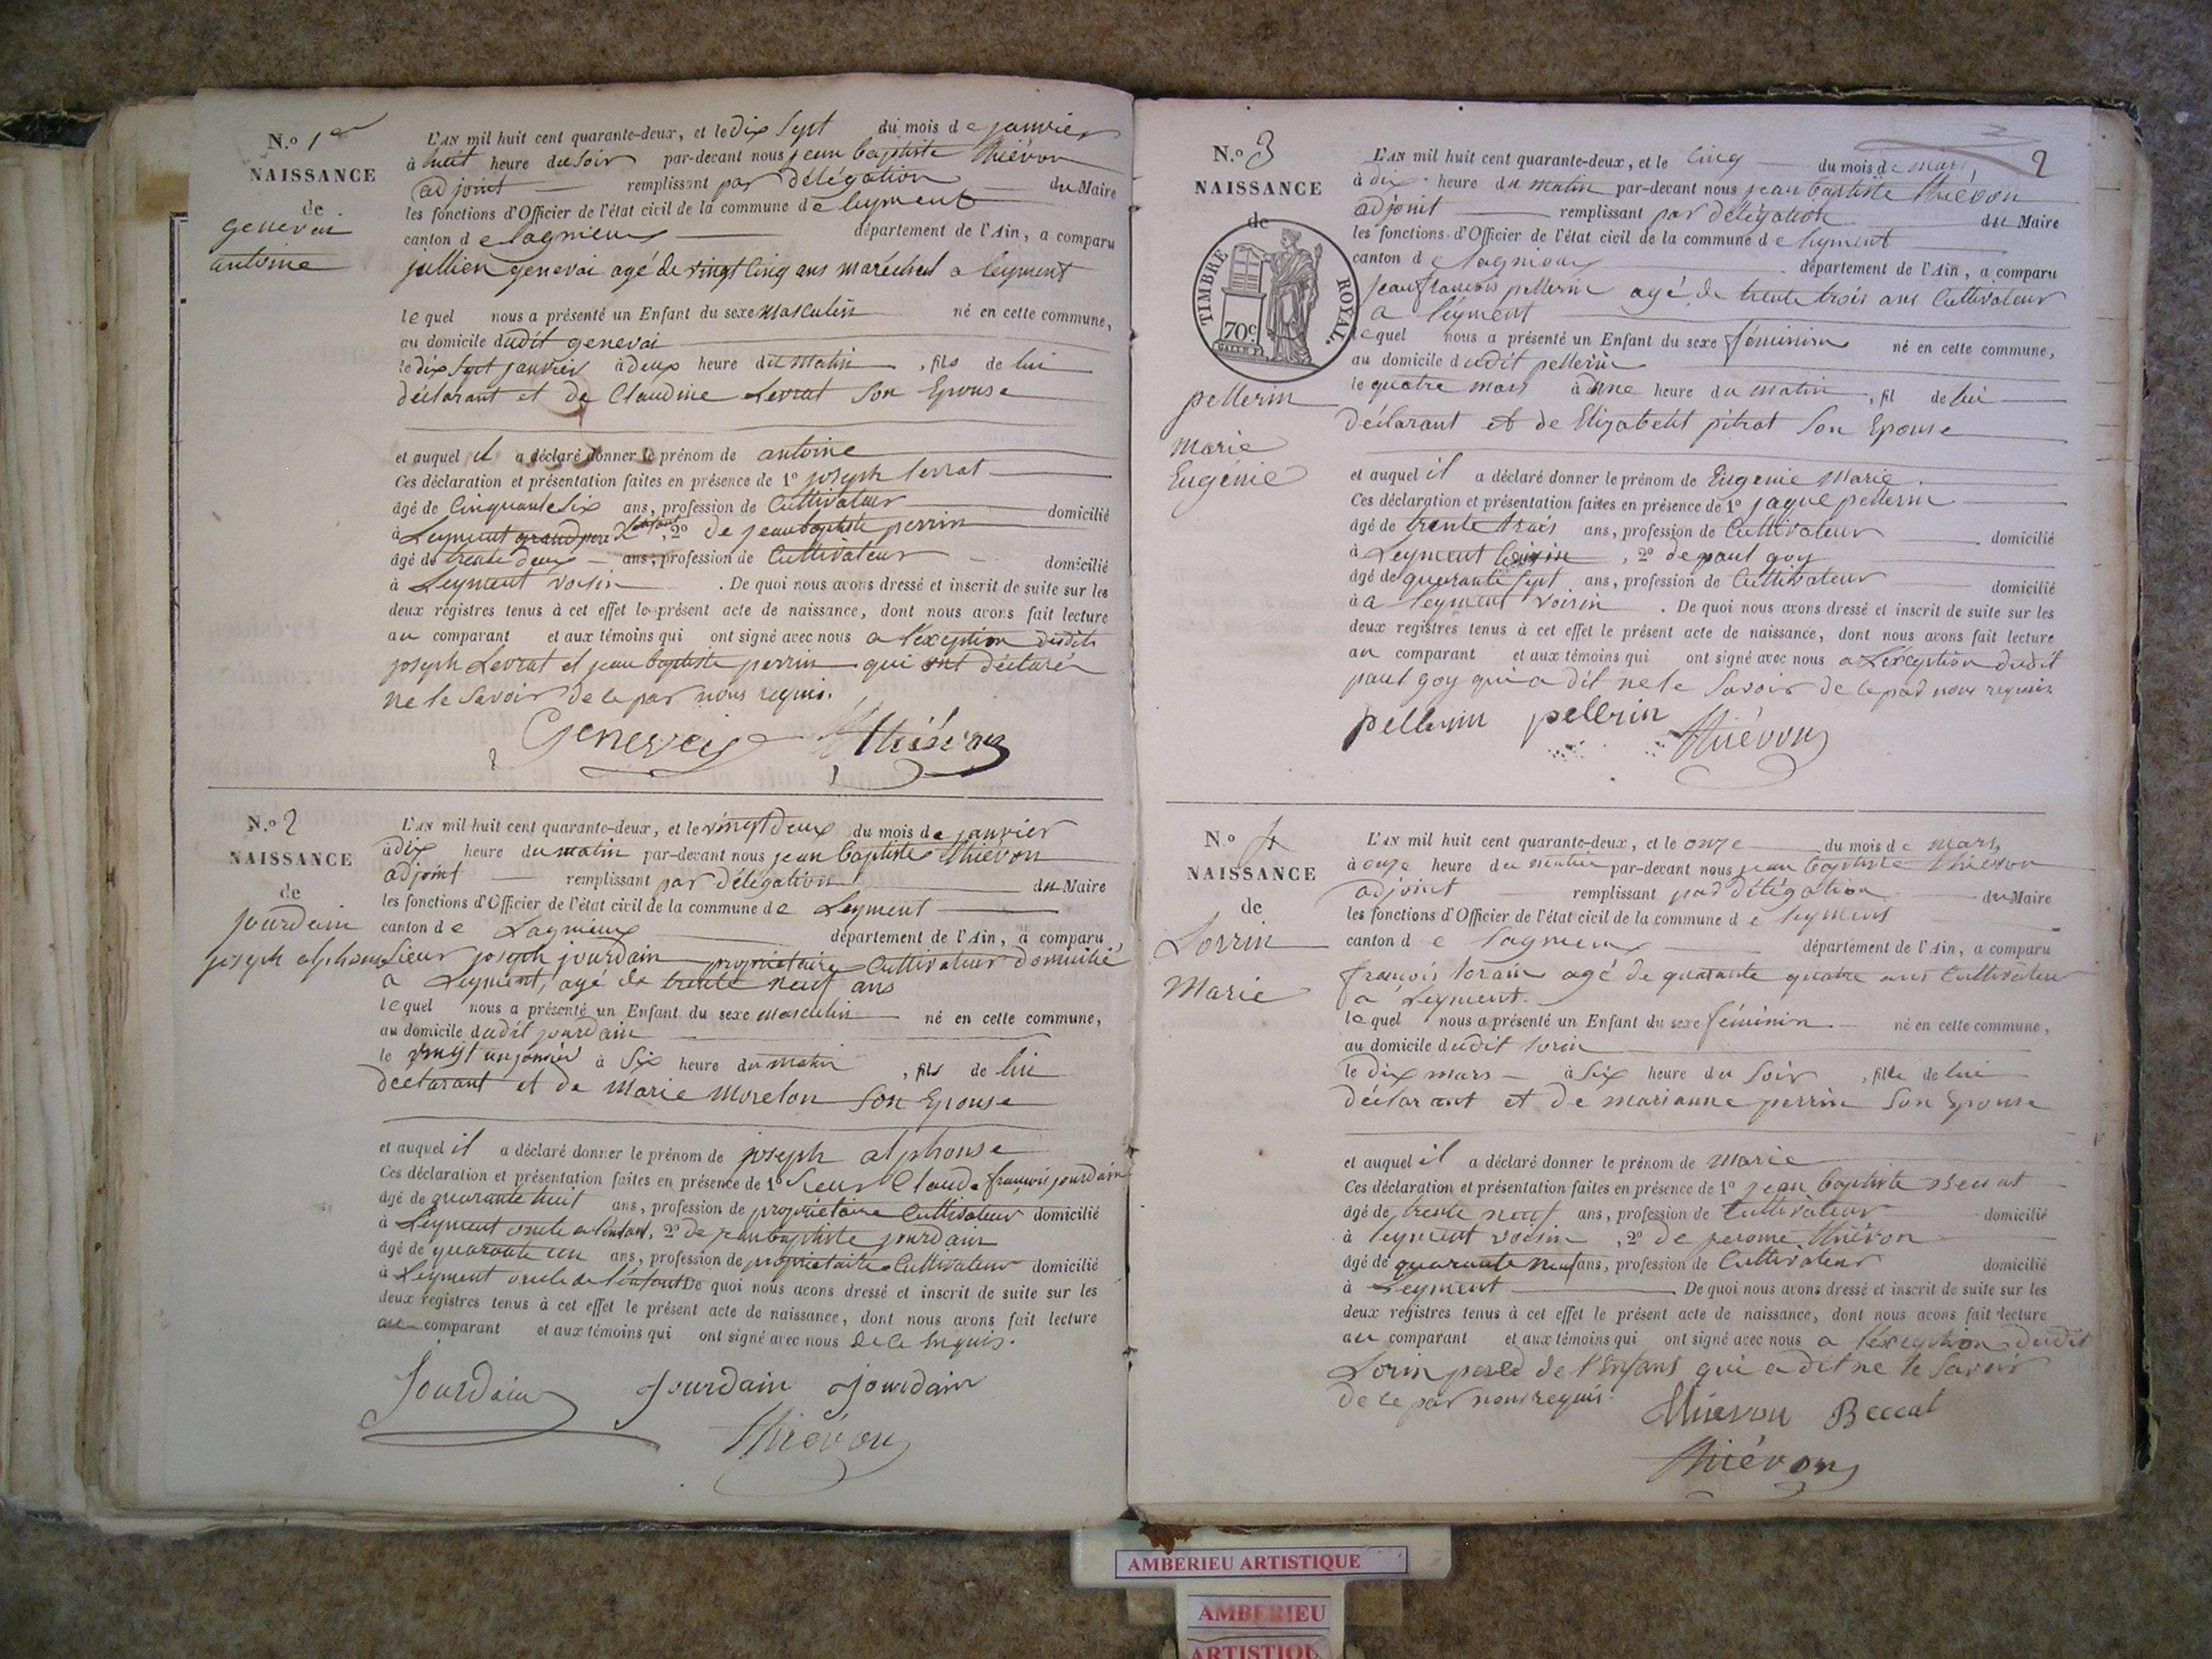 N.º 1er
NAISSANCE
de
genevai
antoine
L'AN mil huit cent quarante-deux, et le dix Sept du mois de janvier
à huit heure du Soir par-devant nous jean baptiste thiévon
adjoint remplissant par délégation du Maire
les fonctions d'Officier de l'état civil de la commune de leyment
canton de Lagnieux département de l'Ain, a comparu
jullien genevai agé de vingt cinq ans maréchal a leyment
lequel nous a présenté un Enfant du sexe masculin né en cette commune,
au domicile dudit genevai
le dix sept janvier à deux heure du matin, fils de lui
déclarant et de Claudine Levrat Son Epouse
et auquel il a déclaré donner le prénom de antoine
Ces déclaration et présentation faites en présence de 1º joseph levrat
âgé de Cinquante Six ans, profession de Cultivateur domicilié
à Leyment grand pere, 2º de jean baptiste perrin
âgé de trente deux ans, profession de Cultivateur domicilié
à Leyment voisin. De quoi nous avons dressé et inscrit de suite sur les
deux registres tenus à cet effet le présent acte de naissance, dont nous avons fait lecture
au comparant et aux témoins qui ont signé avec nous a l'éxception desdits
joseph Levrat et jean baptiste perrin qui ont déclarés
ne le Savoir de ce par nous requis.
Genevay thiévon
N.º 2
NAISSANCE
de
jourdain
joseph alphonse
L'AN mil huit cent quarante-deux, et le vingt deux du mois de janvier
à dix heure du matin par-devant nous jean baptiste thiévon
adjoint remplissant par délégation du Maire
les fonctions d'Officier de l'état civil de la commune de Leyment
canton de Lagnieux département de l'Ain, a comparu
Sieur joseph jourdain propriétaire Cultivateur domicilié
a Leyment, agé de trente neuf ans
lequel nous a présenté un Enfant du sexe masculin né en cette commune,
au domicile dudit jourdain
le vingt un janvier à Six heure du matin, fils de lui
déclarant et de Marie Morelon Son Epouse
et auquel il a déclaré donner le prénom de joseph alphonse
Ces déclaration et présentation faites en présence de 1º Sieur Claude françois jourdain
âgé de quarante huit ans, profession de propriétaire Cultivateur domicilié
à Leyment oncle a l'enfant, 2º de jean baptiste jourdain
âgé de quarante un ans, profession de propriétaire Cultivateur domicilié
à Leyment oncle de l'enfant De quoi nous avons dressé et inscrit de suite sur les
deux registres tenus à cet effet le présent acte de naissance, dont nous avons fait lecture
au comparant et aux témoins qui ont signé avec nous de ce requis.
Jourdain Jourdain Jourdain
thiévon
2
N.º 3
NAISSANCE
de
TIMBRE ROYAL.
70c
pellerin
marie
Eugénie
L'AN mil huit cent quarante-deux, et le cinq du mois de mars
à dix heure du matin par-devant nous jean baptiste thiévon
adjoint remplissant par délégation du Maire
les fonctions d'Officier de l'état civil de la commune de leyment
canton de Lagnieux département de l'Ain, a comparu
jean françois pellerin agé de trente trois ans Cultivateur
a leyment
lequel nous a présenté un Enfant du sexe féminim né en cette commune,
au domicile dudit pellerin
le quatre mars à une heure du matin, fil de lui
déclarant et de Elizabeht pitrat Son Epouse
et auquel il a déclaré donner le prénom de Eugenie Marie.
Ces déclaration et présentation faites en présence de 1º jaque pellerin
âgé de trente trois ans, profession de Cultivateur domicilié
à Leyment, 2º de paul goy
âgé de quarante Sept ans, profession de Cultivateur domicilié
à a leyment voisin. De quoi nous avons dressé et inscrit de suite sur les
deux registres tenus à cet effet le présent acte de naissance, dont nous avons fait lecture
au comparant et aux témoins qui ont signé avec nous a L'éxception dudit
paul goy qui a dit ne le Savoir de ce par nous requis
pellerin pellerin thiévon
N.º 4
NAISSANCE
de
Lorrin
Marie
L'AN mil huit cent quarante-deux, et le onze du mois de mars
à onze heure du matin par-devant nous jean baptiste thiévon
adjoint remplissant par délégation du Maire
les fonctions d'Officier de l'état civil de la commune de leyment
canton de Lagnieux département de l'Ain, a comparu
françois lorain agé de quarante quatre ans Cultivateur
a Leyment.
lequel nous a présenté un Enfant du sexe féminin né en cette commune,
au domicile dudit lorin
le dix mars à Six heure du Soir, fille de lui
déclarant et de marianne perrin Son Epouse
et auquel il a déclaré donner le prénom de marie
Ces déclaration et présentation faites en présence de 1º jean baptiste Beccat
âgé de trente neuf ans, profession de Cultivateur domicilié
à leyment voisin, 2º de jerome thiévon
âgé de quarante neuf ans, profession de Cultivateur domicilié
à Leyment De quoi nous avons dressé et inscrit de suite sur les
deux registres tenus à cet effet le présent acte de naissance, dont nous avons fait lecture
au comparant et aux témoins qui ont signé avec nous a l'éxception dudit
Lorin pere de l'Enfant qui a dit ne le Savoir
de ce par nous requis.
thievon Beccat
thiévon
AMBERIEU ARTISTIQUE
AMBERIEU
ARTISTIQU